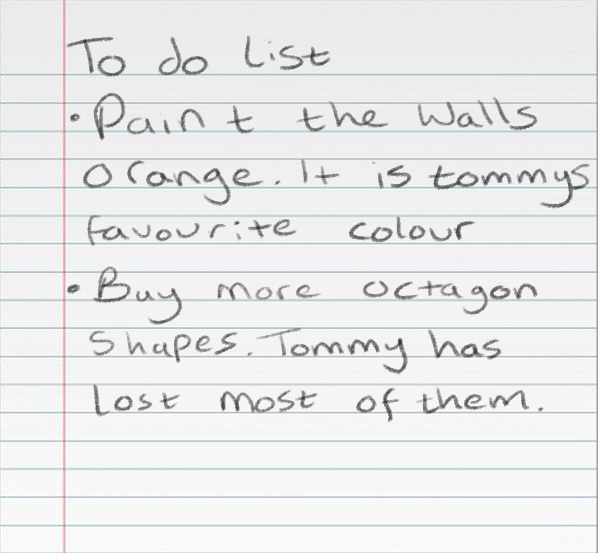 To do list
• Paint the Walls
orange. It is tommys
favourite colour
• Buy more octagon
shapes. Tommy has
lost most of them.